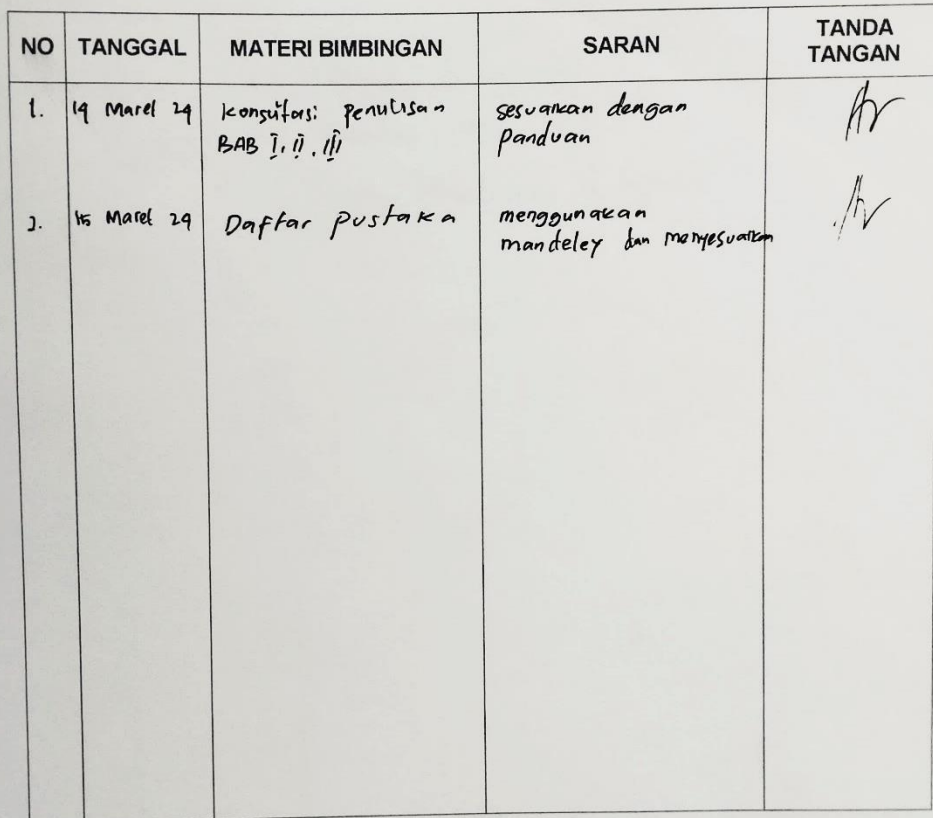 NO TANGGAL MATERI BIMBINGAN SARAN TANDA TANGAN
1. 14 Maret 24 Konsultasi Penulisan sesuaikan dengan
BAB I, II, III panduan
2. 15 Maret 24 Daftar pustaka menggunakan
mandeley dan menyesuaikan